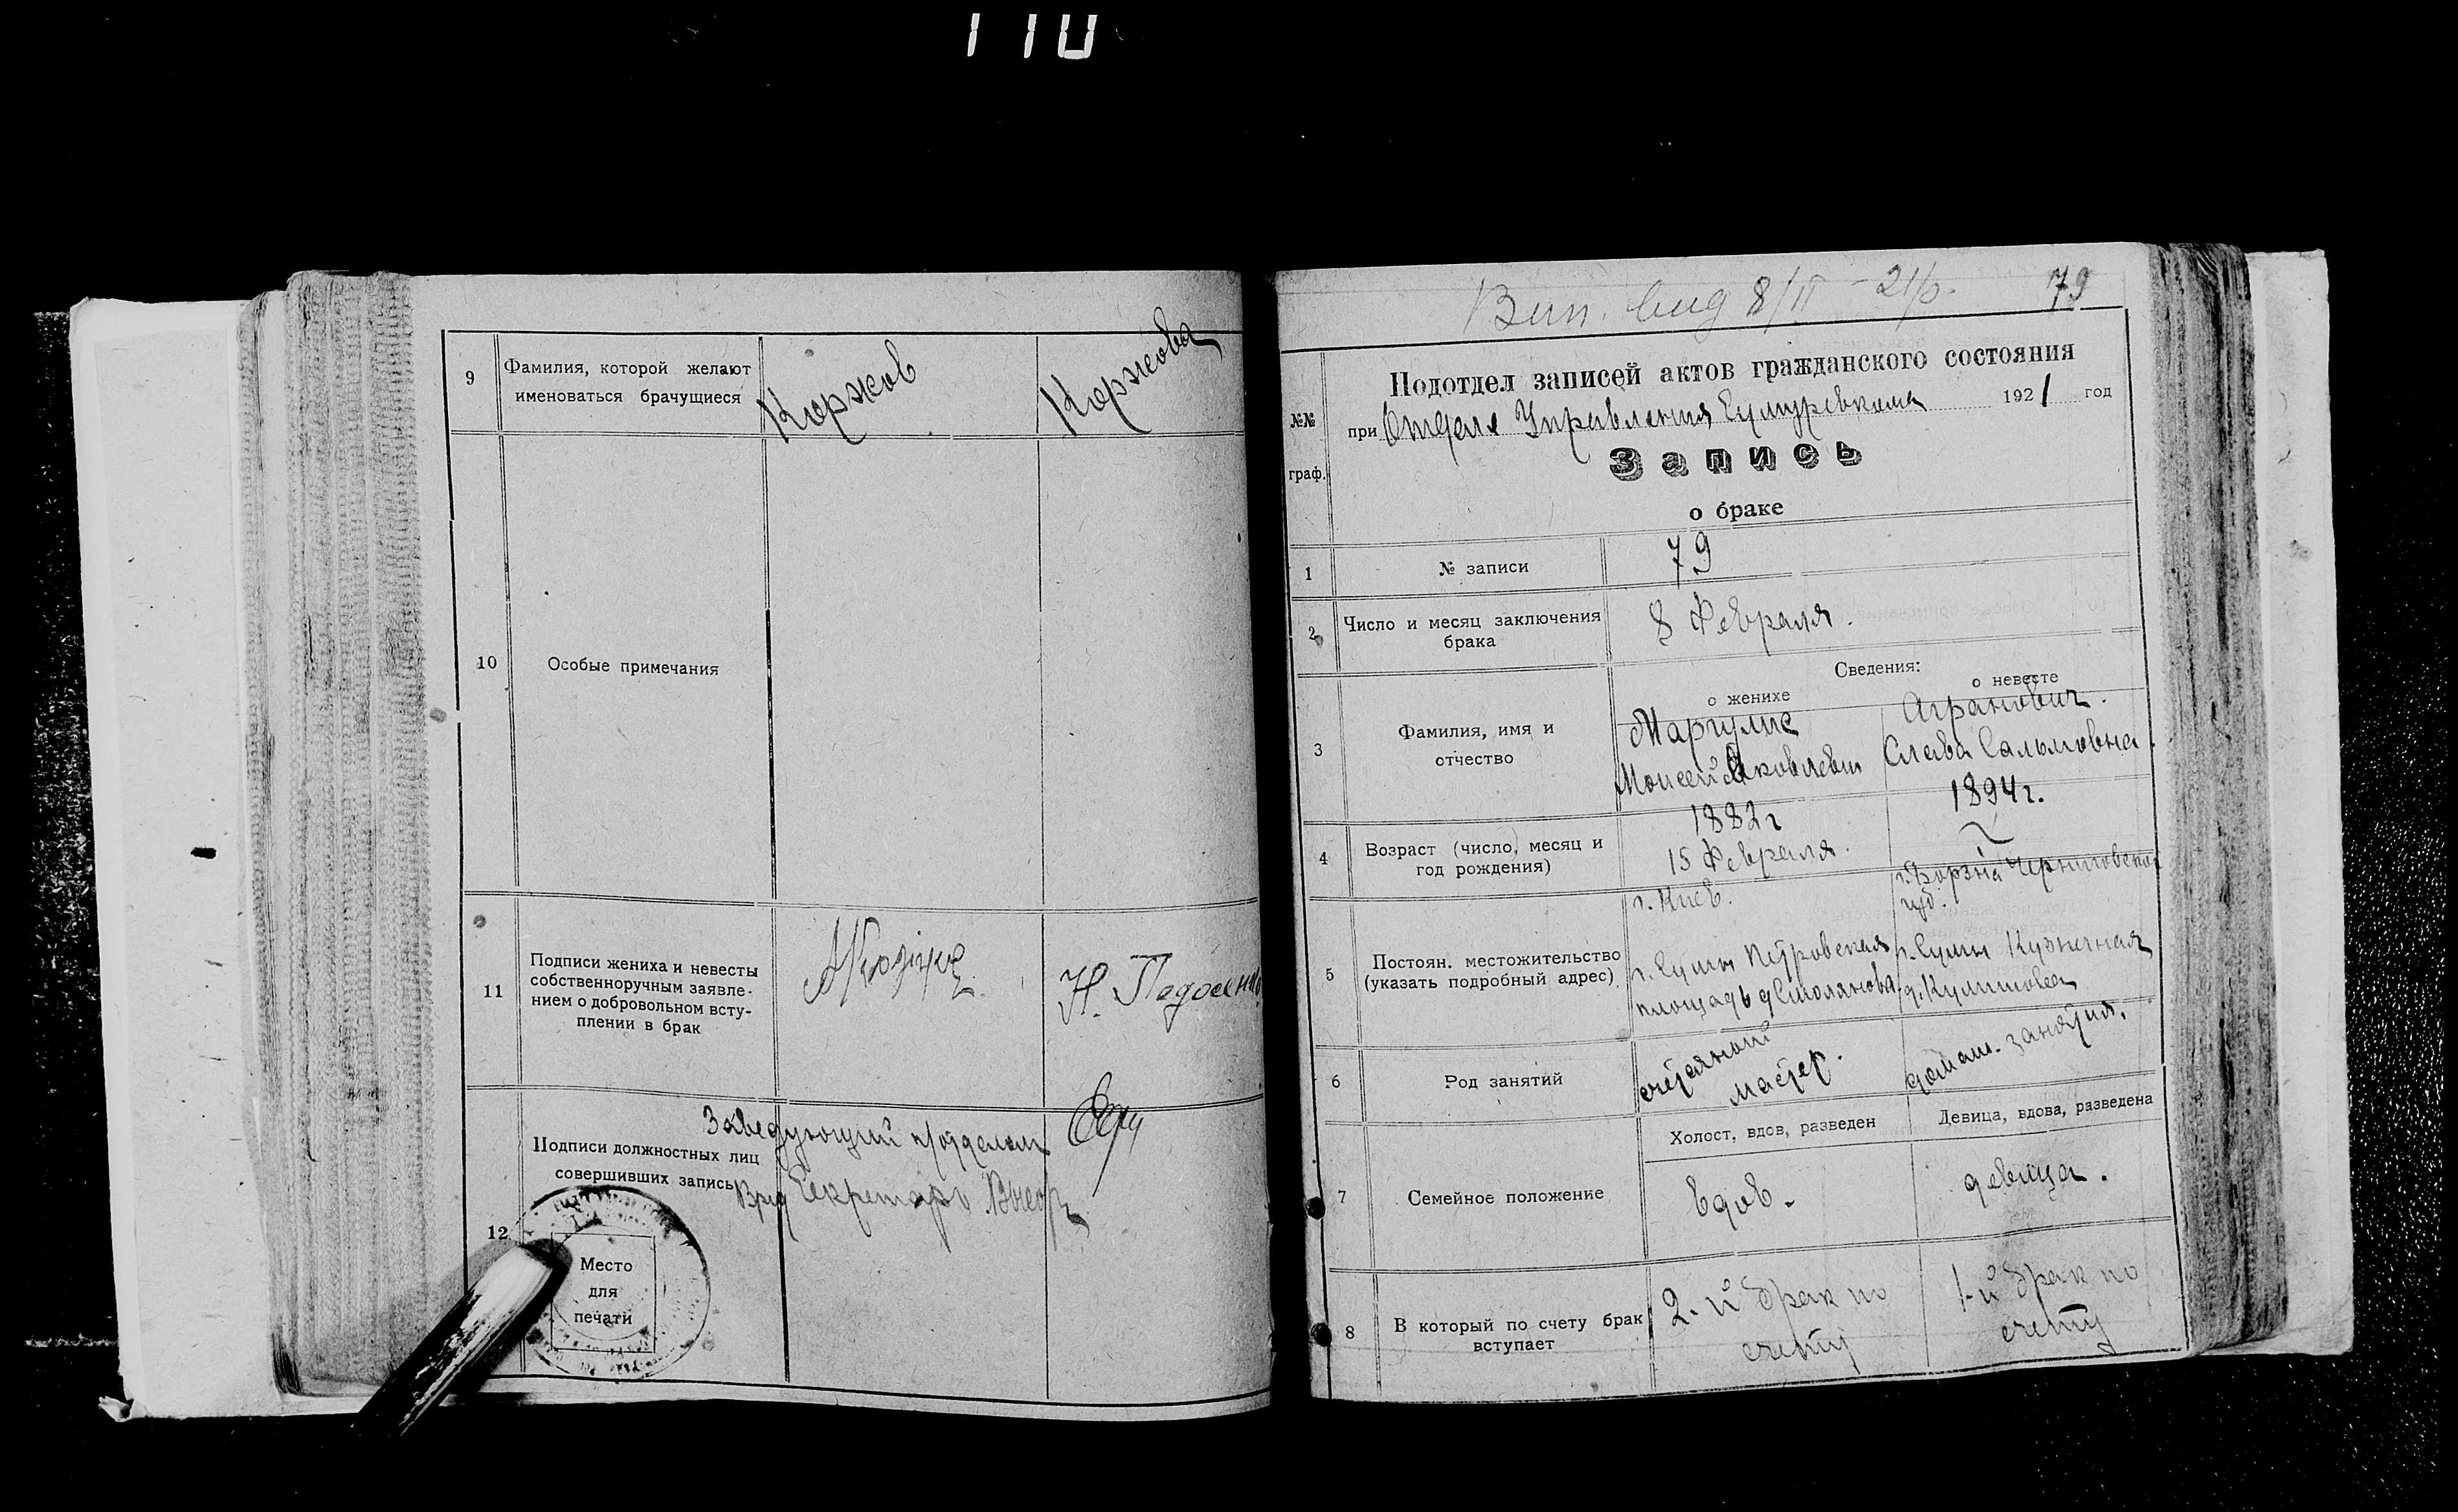 110
9
Фамилия, которой желают
именоваться брачущиеся
Коржов
Коржова
10
Особые примечания
11
Подписи жениха и невесты
собственноручным заявле-
нием о добровольном всту-
плении в брак
Н.
12
Подписи должностных лиц
совершивших запись
Заведующий п/отделом
Врид Секретарь
Место
для
печати
Вып. вид 8/II - 21 г.
79
№№
граф.
Подотдел записей актов гражданского состояния
при Отделе Управления Сумуревкома 1921 год
Запись
о браке
1
№ записи
79
2
Число и месяц заключения
брака
8 Февраля.
Сведения:
о женихе
о невесте
3
Фамилия, имя и
отчество
Маргулис
Моисей Яковлевич
Агранович.
Слава Сальмовна.
4
Возраст (число, месяц и
год рождения)
1882 г
15 Февраля.
1894 г.
5
Постоян. местожительство
(указать подробный адрес)
г. Киев.
г. Сумы Петровская
площадь д Смолянова
г. Борзна Черниговской
губ.
г. Сумы Кузнечная
д. Куличовой
6
Род занятий
мастер.
домаш. занятия.
7
Семейное положение
Холост, вдов, разведен
Девица, вдова, разведена
вдов.
девица.
8
В который по счету брак
вступает
2-й брак по
счету
1-й брак по
счету